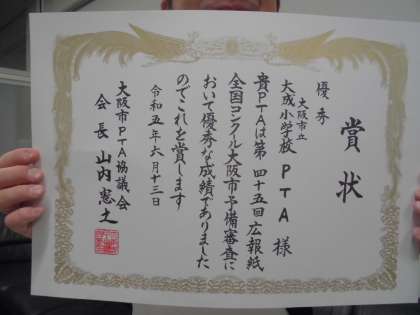 賞状
優秀
大阪市立
大成小学校PTA様
貴PTAは第四十五回広報紙
全国コンクール大阪市予備審査に
おいて優秀な成績でありました
のでこれを賞します
令和五年六月十三日
大阪市PTA協議会
会長 山内憲之